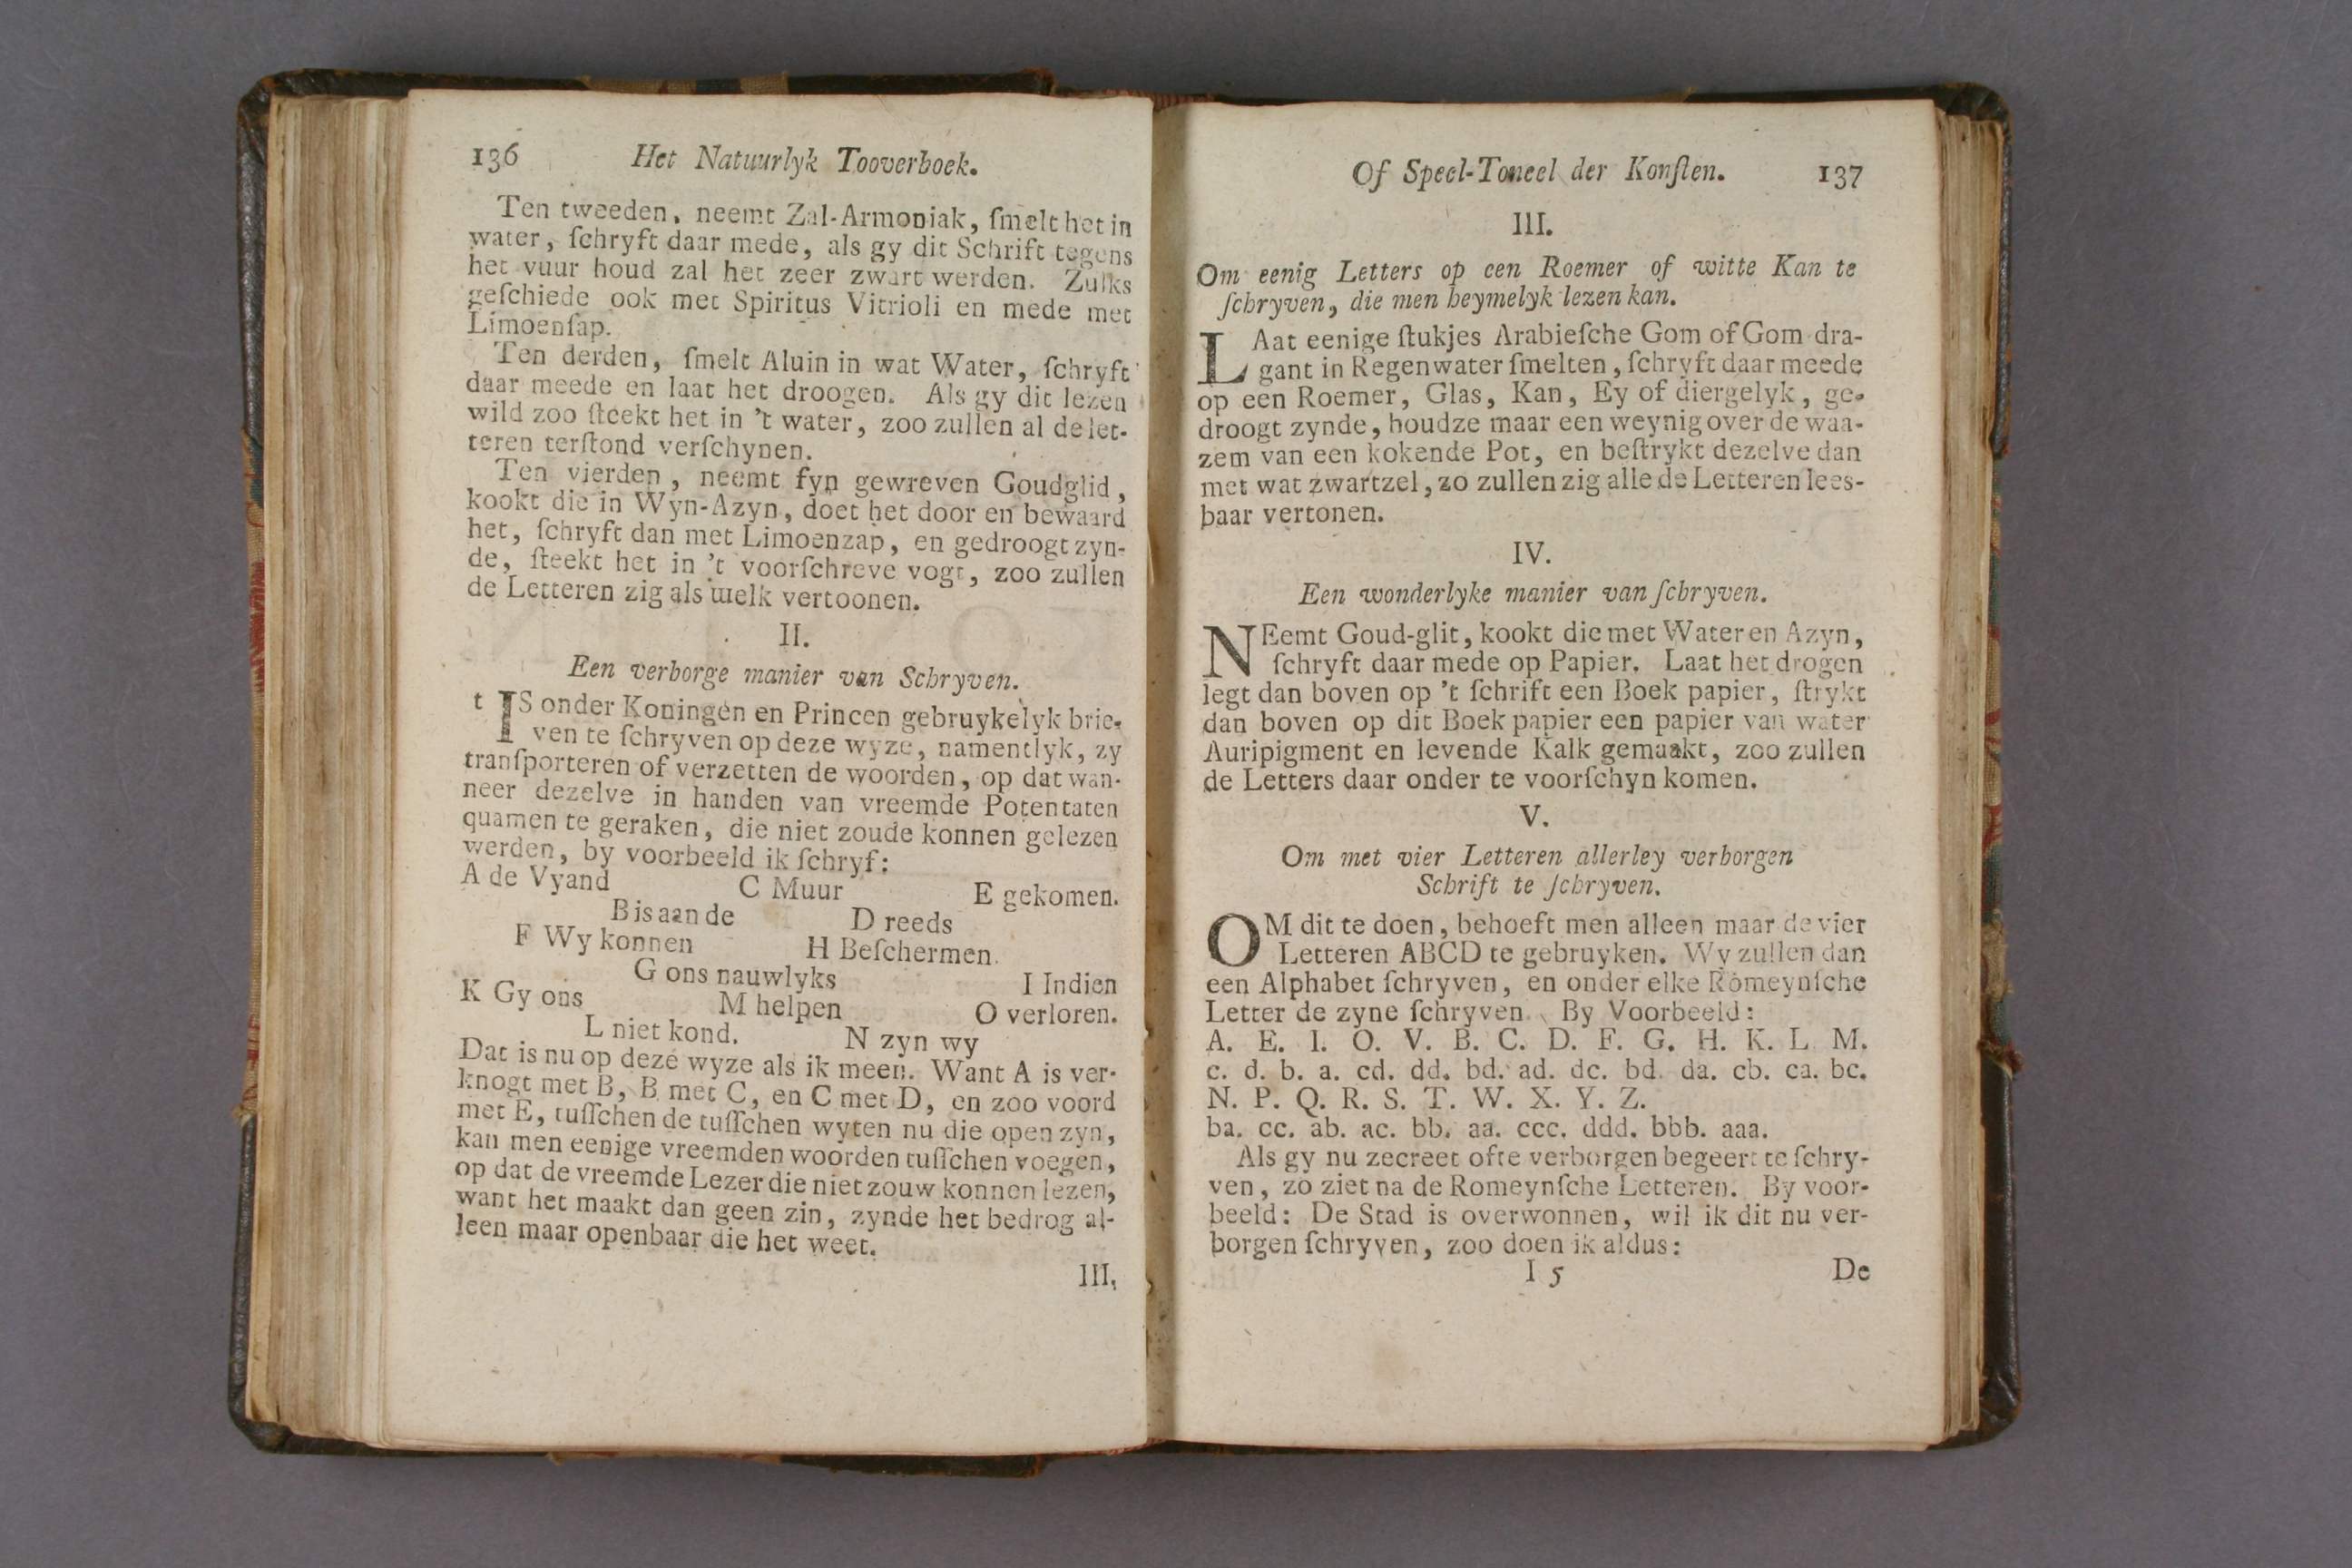 136 Het Natuurlyk Tooverboek.
Ten tweeden, neemt Zal-Armoniak, ſmelt het in
water, ſchryft daar mede, als gy dit Schrift tegens
het vuur houd zal het zeer zwart werden. Zulks
geſchiede ook met Spiritus Vitrioli en mede met
Limoenſap.
Ten derden, ſmelt Aluin in wat Water, ſchryft
daar meede en laat het droogen. Als gy dit lezen
wild zoo ſteekt het in 't water, zoo zullen al de let-
teren terſtond verſchynen.
Ten vierden, neemt fyn gewreven Goudglid,
kookt die in Wyn-Azyn, doet het door en bewaard
het, ſchryft dan met Limoenzap, en gedroogt zyn-
de, ſteekt het in 't voorſchreve vogt, zoo zullen
de Letteren zig als melk vertoonen.
II.
Een verborge manier van Schryven.
t IS onder Koningen en Princen gebruykelyk brie-
ven te ſchryven op deze wyze, namentlyk, zy
tranſporteren of verzetten de woorden, op dat wan-
neer dezelve in handen van vreemde Potentaten
quamen te geraken, die niet zoude konnen gelezen
werden, by voorbeeld ik ſchryf:
A de Vyand C Muur E gekomen.
B is aan de D reeds
F Wy konnen H Beſchermen.
G ons nauwlyks I Indien
K Gy ons M helpen O verloren.
L niet kond. N zyn wy
Dat is nu op deze wyze als ik meen. Want A is ver-
knogt met B, B met C, en C met D, en zoo voord
met E, tuſſchen de tuſſchen wyten nu die open zyn,
kan men eenige vreemden woorden tuſſchen voegen,
op dat de vreemde Lezer die niet zouw konnen lezen,
want het maakt dan geen zin, zynde het bedrog al-
leen maar openbaar die het weet.
III.
Of Speel-Toneel der Konſten. 137
III.
Om eenig Letters op een Roemer of witte Kan te
ſchryven, die men heymelyk lezen kan.
LAat eenige ſtukjes Arabieſche Gom of Gom dra-
gant in Regenwater ſmelten, ſchryft daar meede
op een Roemer, Glas, Kan, Ey of diergelyk, ge-
droogt zynde, houdze maar een weynig over de waa-
zem van een kokende Pot, en beſtrykt dezelve dan
met wat zwartzel, zo zullen zig alle de Letteren lees-
baar vertonen.
IV.
Een wonderlyke manier van ſchryven.
NEemt Goud-glit, kookt die met Water en Azyn,
ſchryft daar mede op Papier. Laat het drogen
legt dan boven op 't ſchrift een Boek papier, ſtrykt
dan boven op dit Boek papier een papier van water
Auripigment en levende Kalk gemaakt, zoo zullen
de Letters daar onder te voorſchyn komen.
V.
Om met vier Letteren allerley verborgen
Schrift te ſchryven.
OM dit te doen, behoeft men alleen maar de vier
Letteren ABCD te gebruyken. Wy zullen dan
een Alphabet ſchryven, en onder elke Romeynſche
Letter de zyne ſchryven. By Voorbeeld:
A. E. I. O. V. B. C. D. F. G. H. K. L M.
c. d. b. a. cd. dd. bd. ad. dc. bd. da. cb. ca. bc.
N. P. Q. R. S. T. W. X. Y. Z.
ba. cc. ab. ac. bb. aa. ccc. ddd. bbb. aaa.
Als gy nu zecreet ofte verborgen begeert te ſchry-
ven, zo ziet na de Romeynſche Letteren. By voor-
beeld: De Stad is overwonnen, wil ik dit nu ver-
borgen ſchryven, zoo doen ik aldus:
I 5 De